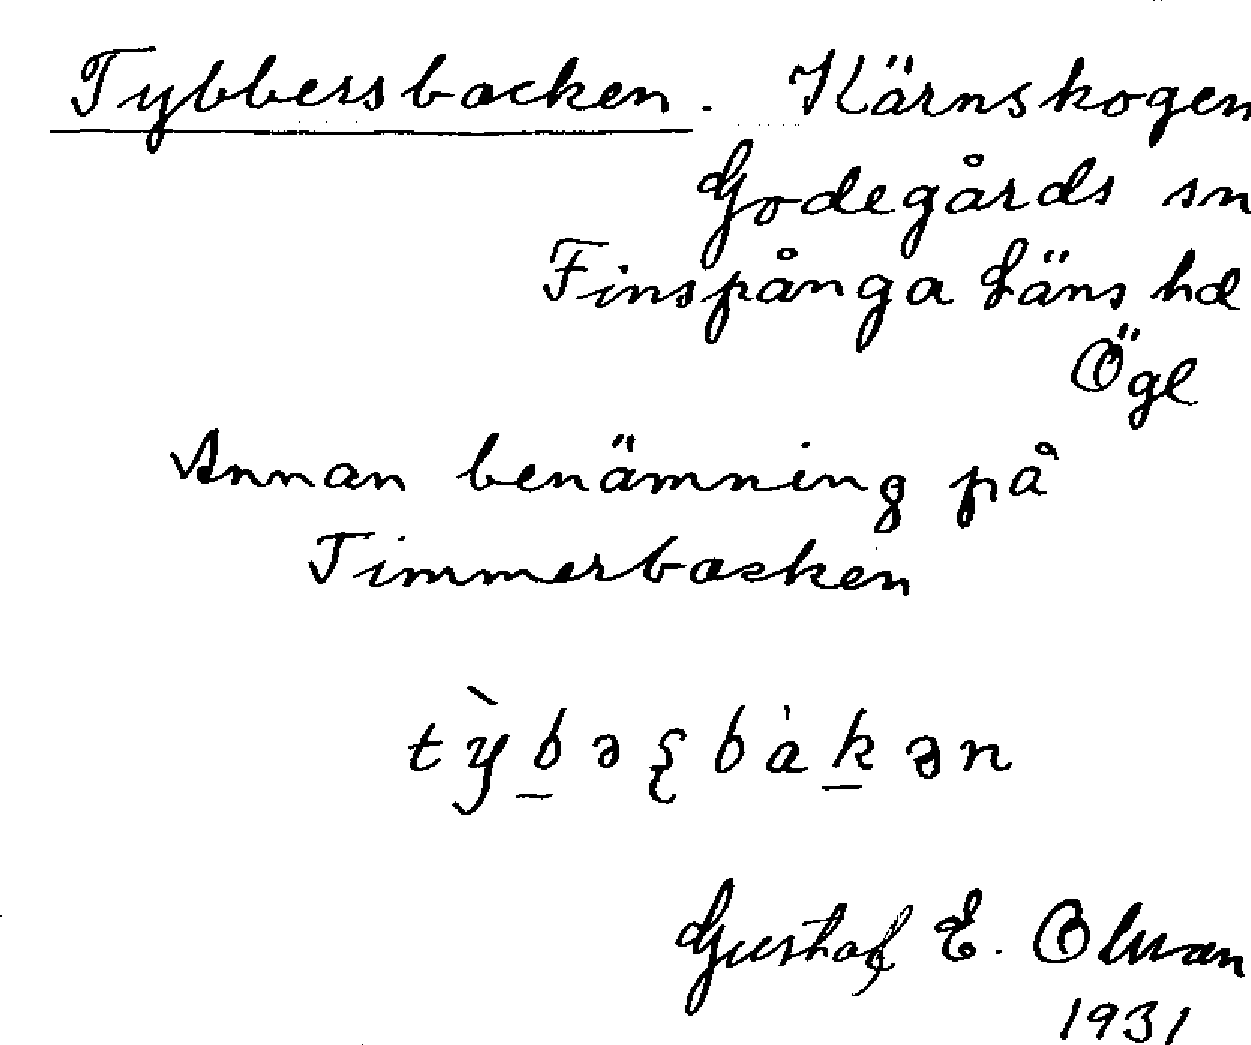 Tybbersbacken. Kärnskogen
Godegårds sn
Finspånga Läns hd
Ögl
Annan benämning på
Timmerbacken
tỳb̲əʂbàk̲ən
Gustaf E.
1931